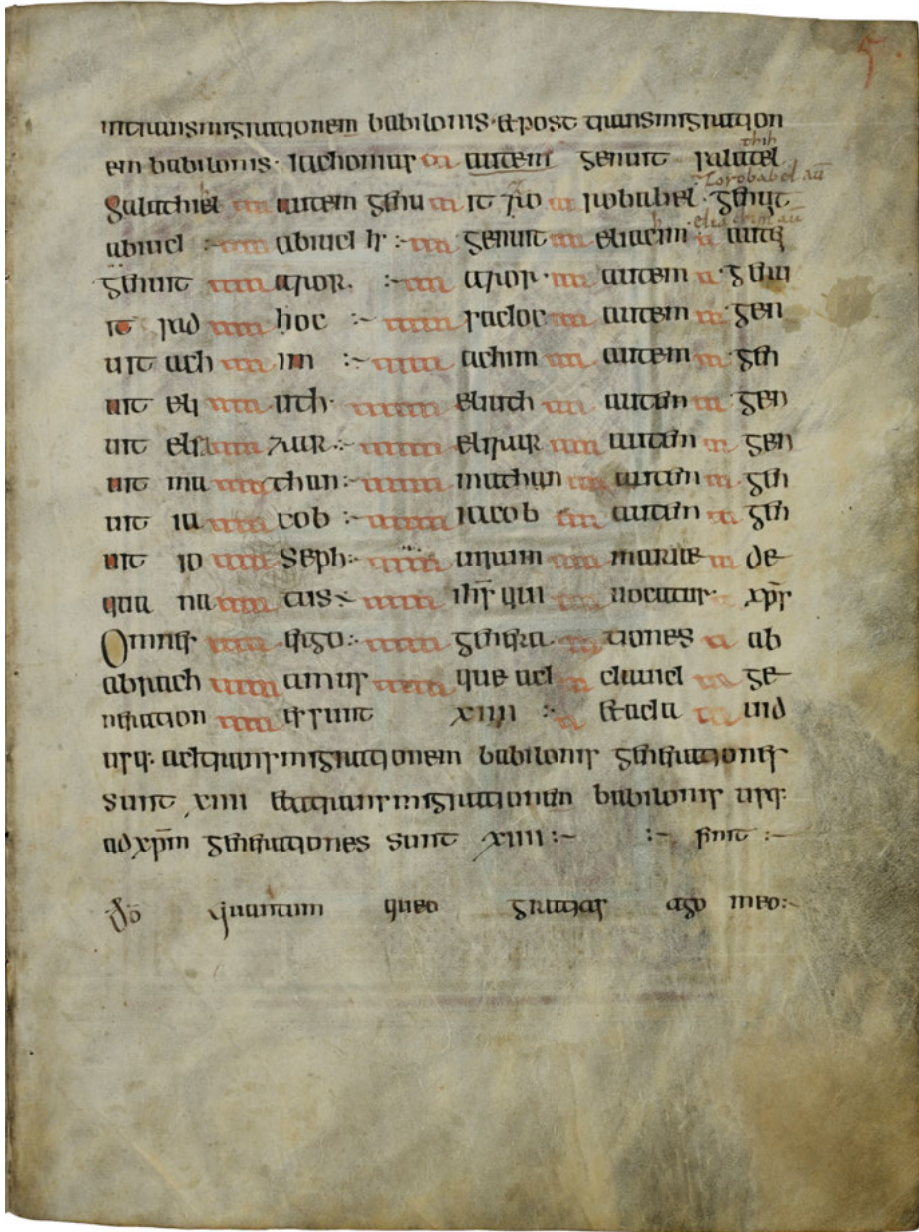 5.
intransmigrationem babilonis · & post transmigration
em babilonis · iachonias autem genuit salatel
thih
Zorobabel aū
salathiel autem genu it zo robabel · genuit
eliachim aū
abiud :~ abiud h :~ genuit eliacim autē
genuit azor. :~ azor · autem · genu
it sad hoc :~ sadoc autem · gen
uit ach im :~ achim autem · gen
uit eli uth · eliuth autem · gen
uit elea zar :~ eliazar autem gen
uit ma than :~ mathan autem · gen
uit ia cob :~ iacob autem gen
uit io seph :~ uirum mariae de
qua na tus :~ ihs qui uocatur · xps
Omnes ergo :~ genera tiones ab
abrach am us que ad dauid ge
neration es sunt xiiii :~ & a dauid
usq · ad transmigrationem babilonis generationes
sunt xiiii & a transmigrationem babilonis usq:
ad xpm generationes sunt xiiii :~ :~ finit :~
do quantum queo gratias ago meo :~